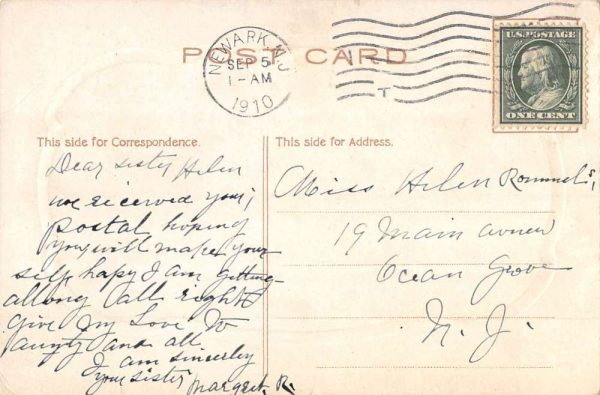 POST CARD
NEWARK, N.J.
SEP 5
1-AM
1910
T
U.S. POSTAGE
ONE CENT
This side for Correspondence.
Dear sister Helen
we received your
postal hoping
you will make your
self hapy I am getting
allong all right
give my Love to
and all
I am sincerley
your sister Margret. R.
This side for Address.
Miss Helen
19 Main avenue
Ocean Grove
N. J.